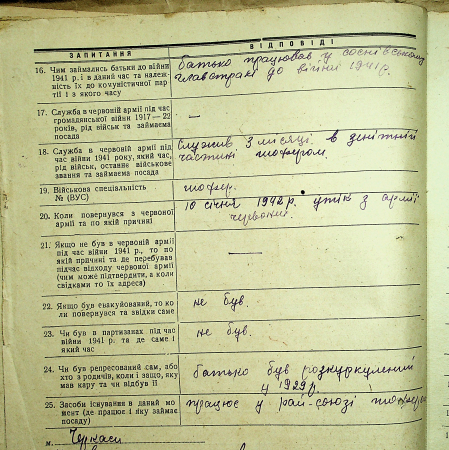 ЗАПИТАННЯ
ВІДПОВІДІ
16. Чим займались батьки до війни
1941 р. і в даний час та належ-
ність їх до комуністичної пар-
тії і з якого часу
батько працював у соснівському
главтракі до війни 1941 р.
17. Служба в червоній армії під час
громадянської війни 1917—22
років, рід військ та займаєма
посада
—
18. Служба в червоній армії під
час війни 1941 року, який час,
рід військ, останнє військове
звання та займаєма посада
Служив 3 місяці в зенітній
частині шофером.
19. Військова спеціальність
№ (ВУС)
шофер.
20. Коли повернувся з червоної
армії та по якій причині
10 січня 1942 р. утік з армії
червоній.
21. Якщо не був в червоній армії
під час війни 1941 р., то по
якій причині та де перебував
підчас відходу червоної армії
(чим може підтвердити, а коли
свідками то їх адреса)
—
22. Якщо був евакуйований, то ко
ли повернувся та звідки саме
не був.
23. Чи був в партизанах під час
війни 1941 та де саме і
який час
не був.
24. Чи був репресований сам, або
хто з родичів, коли і защо, яку
мав кару та чи відбув її
батько був розкуркулений
у 1929 р.
25. Засоби існування в даний мо
мент (де працює і яку займає
посаду)
працює у рай-союзі шофером
м. Черкаси